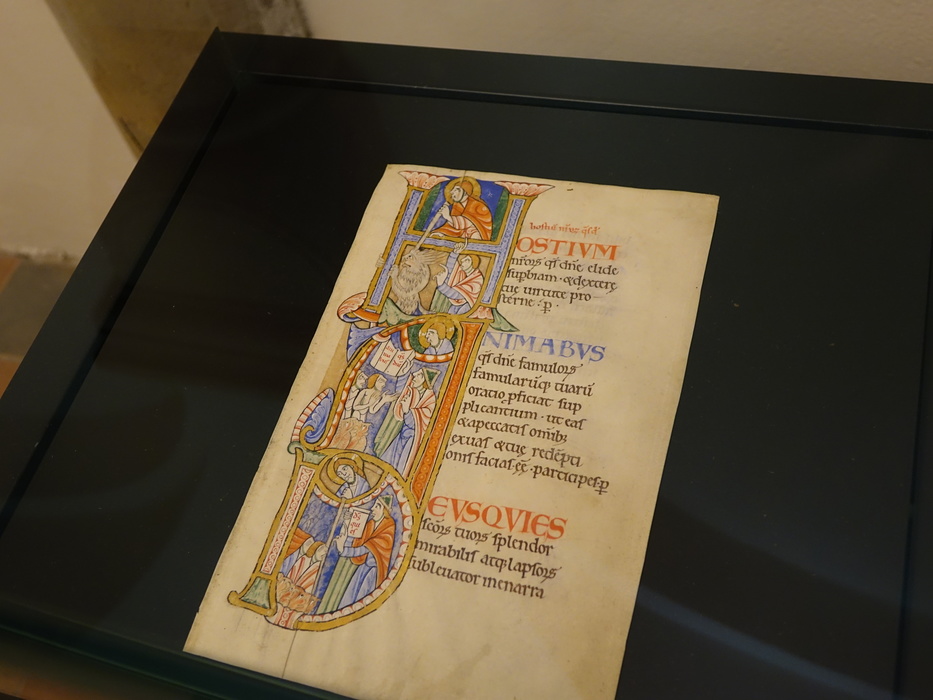 HOSTIUM
nrōrs qs dnē elide
supbiam · & dextere
tue uirtute pro
sterne · p
ANIMABUS
qs dnē famulorz
famularūq; tuarū
oratio pficiat sup
plicantium · ut eas
& a peccatis omib;
exuas & tue redēpti
onis facias ēē · participes p
DEUSQUIES
scōrs tuors splendor
mirabilis atq; lapsors
subleuator inenarra